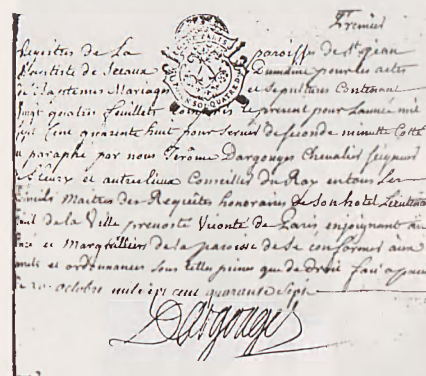 Premier
Registres de La paroisse de St. Jean
Baptiste de Sceaux Dumaine pour les actes
de Baptemes Mariages et sepultures Contenant
vingt quatre feuillets et present pour Lannée mil
sept Cent quarante huit pour servir de seconde minutte Cotté
et paraphé par nous Jerôme Dargouges Chevalier seigneur
fleury et autres lieux Conseiller du Roy en tous Ses
Conseils Maitres des Requestes honoraire de son hotel Lieutenant
Civil de la Ville prevosté Viconté de Paris enjoignant au
Curé et Marguilliers de la paroisse de se conformer aux
et ordonnances sous telles peines que de droit fait
ce octobre mil sept cent quarante Sept
Dargouges